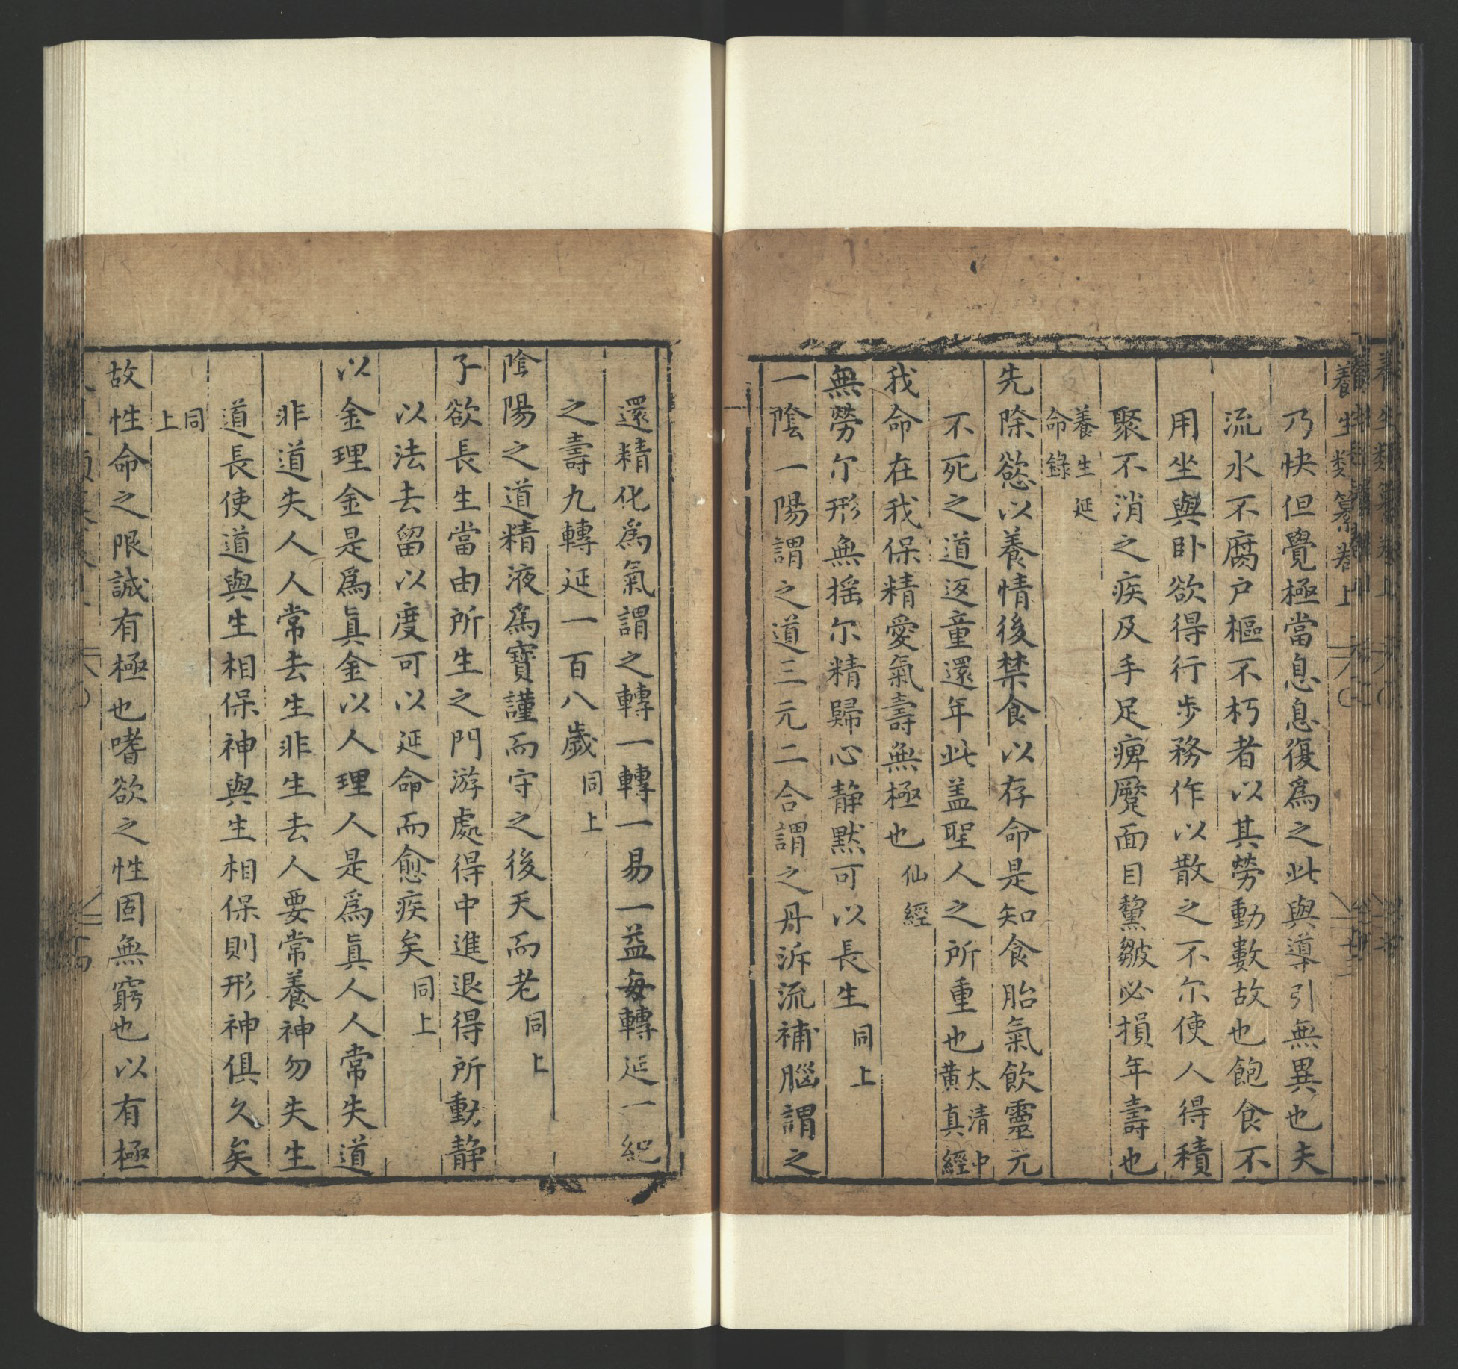 養生類纂卷上
乃快但覺極當息息復爲之此與導引無異也夫
流水不腐户樞不朽者以其勞動數故也飽食不
用坐與卧欲得行步務作以散之不尓使人得積
聚不消之疾及手足痺蹷面目黧皺必損年壽也
養生延
命錄
先除慾以養情後禁食以存命是知食胎氣飲靈元
不死之道返童還年此盖聖人之所重也太清中
黄真經
我命在我保精愛氣壽無極也仙經
無勞尓形無摇尓精歸心静黙可以長生同上
一隂一陽謂之道三元二合謂之丹泝流補腦謂之
還精化爲氣謂之轉一轉一易一益每轉延一紀
之壽九轉延一百八歲同上
隂陽之道精液爲寶謹而守之後天而老同上
子欲長生當由所生之門游處得中進退得所動静
以法去留以度可以延命而愈疾矣同上
以金理金是爲眞金以人理人是爲眞人人常失道
非道失人人常去生非生去人要常養神勿失生
道長使道與生相保神與生相保則形神俱久矣
同
上
故性命之限誠有極也嗜欲之性固無窮也以有極